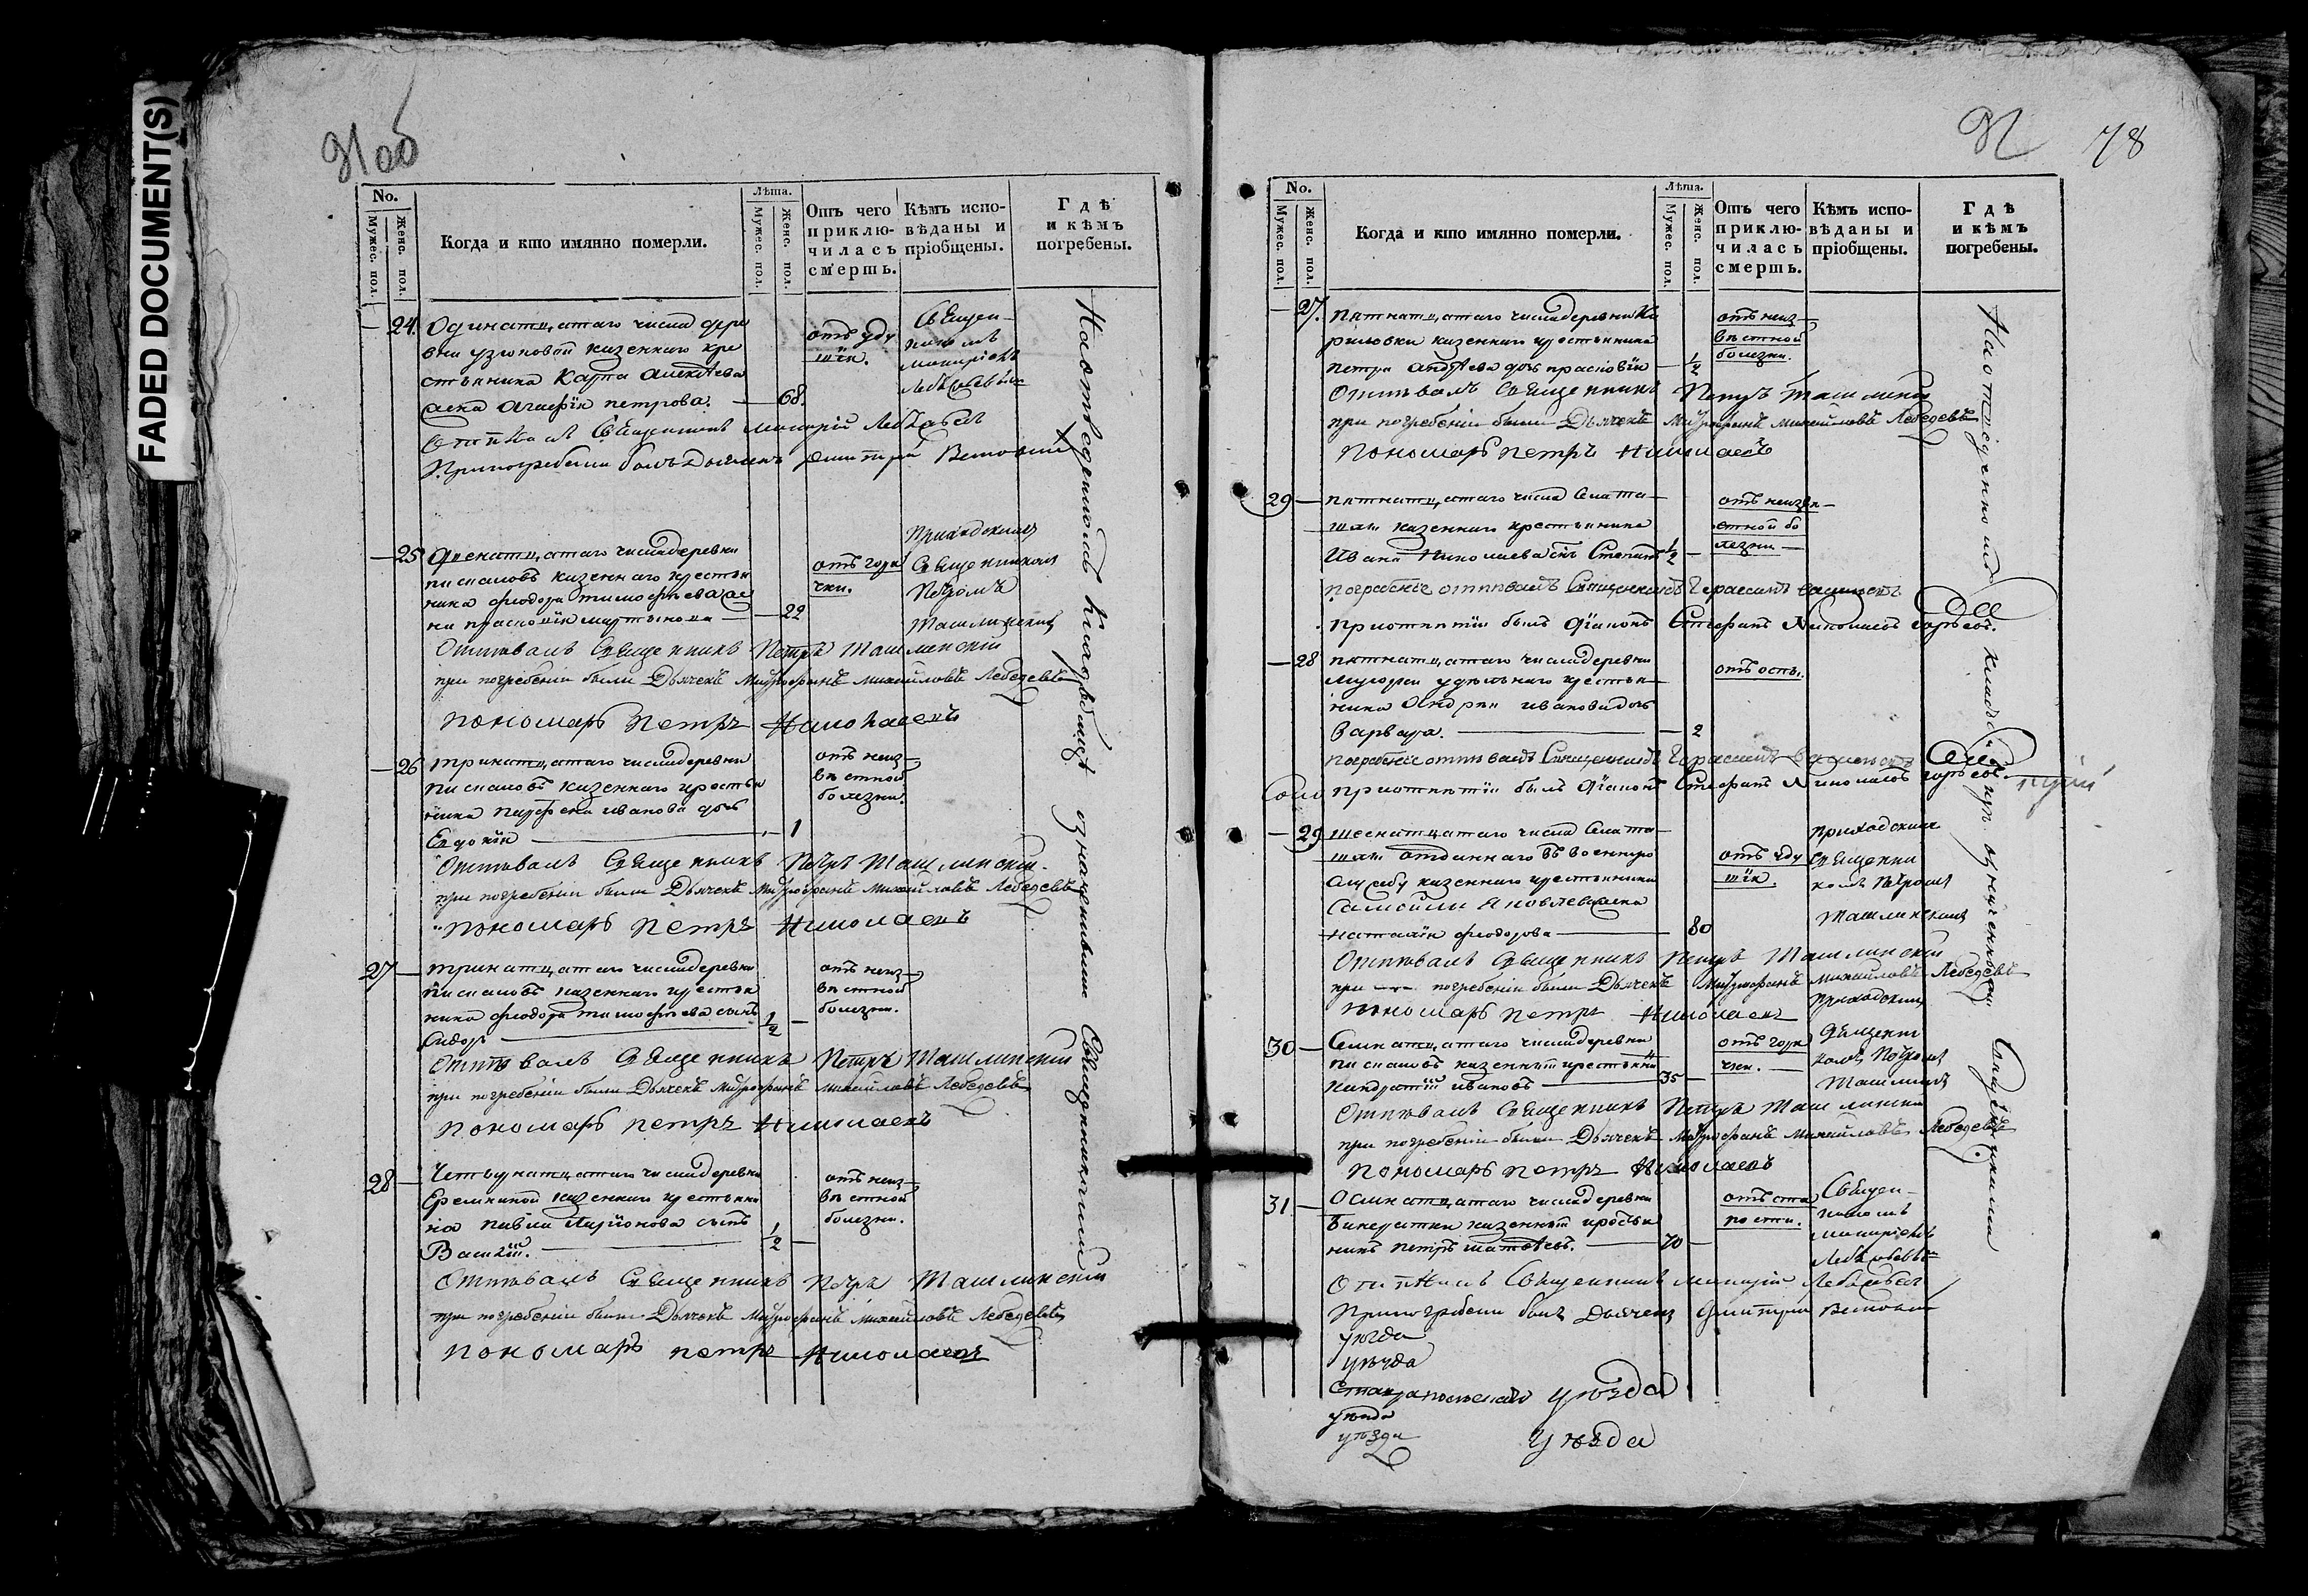 FADED DOCUMENT(S)
78
No.
Мужес. пол.
Женс. пол.
Когда и кто имянно померли.
Лѣта.
Мужес. пол.
Женс. пол.
Отъ чего приклю-
чилась смерть.
Кѣмъ испо-
вѣданы и
пріобщены.
Гдѣ
и кѣмъ
погребены.
24.
Одинатцатаго числа дере
вни узюковой казеннаго кре
стьянина Карпа Алексѣева
жена Агафія петрова. — 68.
отъ уду
шія.
Священ-
никомъ
Отпѣвалъ Священникъ
При погребеніи былъ Дьячекъ Дмитрій
25
Двенатцатаго числа деревни
пискаловъ казеннаго крестья
нина феодора тимофѣева же
на прасковія мартынова — 22
отъ горя
чки.
Приходскимъ
Священникомъ
Петромъ
Ташлинскимъ
Отпѣвалъ Священникъ Петръ Ташлинскій
при погребеніи были Дьячекъ Митрофанъ михайловъ Лебедевъ
пономарь Петръ Николаевъ
26
тринатцатаго числа деревни
пискаловъ казеннаго крестья
нина парфена иванова дочь
Евдокія — 1
отъ неиз-
вѣстной
болезни.
Отпѣвалъ Священникъ Петръ Ташлинскій.
при погребеніи были Дьячекъ Митрофанъ Михайловъ Лебедевъ
пономарь Петръ Николаевъ
27
тринатцатаго числа деревни
пискаловъ казеннаго крестья
нина феодора тимофѣева сынъ
Сидоръ — 1/2 —
отъ неиз-
вѣстной
болезни.
Отпѣвалъ Священникъ Петръ Ташлинскій
при погребеніи были Дьячекъ Митрофанъ михайловъ Лебедевъ
пономарь петръ Николаевъ
28
Четырнатцатаго числа деревни
Еремкиной казеннаго крестьяни
на павла Ларіонова сынъ
Василій. — 1/2 —
отъ неиз-
вѣстной
болезни.
Отпѣвалъ Священникъ Петръ Ташлинскій
при погребеніи были Дьячекъ Митрофанъ михайловъ Лебедевъ
пономарь петръ Николаевъ
На отведенномъ кладбищѣ означенными Священниками
No.
Мужес. пол.
Женс. пол.
Когда и кто имянно померли.
Лѣта.
Мужес. пол.
Женс. пол.
Отъ чего приклю-
чилась смерть.
Кѣмъ испо-
вѣданы и
пріобщены.
Гдѣ
и кѣмъ
погребены.
27.
пятнатцатаго числа деревни Ки
риловки казеннаго крестьянина
петра андрѣева дочь прасковія — 1/2
отъ неиз-
вѣстной
болезни.
Отпѣвалъ Священникъ Петръ Ташлинскій
при погребеніи были Дьячекъ Митрофанъ михайловъ Лебедевъ
Пономарь петръ Николаевъ
29
пятнатцатаго числа Села та-
шлы казеннаго крестьянина
Ивана Николаева сынъ Степанъ 1/2 —
отъ неизвѣ-
стной бо
лезни —
погребеніе отпѣвалъ Священникъ Герасимъ
При отпѣтіи былъ діаконъ Стефанъ Николаевъ
28
пятнатцатаго числа деревни
удѣльнаго крестья-
нина Андрея иванова дочь
варвара. — 2
отъ оспы.
погребеніе отпѣвалъ Священникъ Герасимъ
При отпѣтіи былъ діаконъ Стефанъ Николаевъ
29
шеснатцатаго числа Села та-
шлы отданнаго въ военную
службу казеннаго крестьянина
Самойлы Яковлева жена
наталія феодорова — 80
отъ уду
шія.
приходскимъ
Священни
комъ Петромъ
Ташлинскимъ
Отпѣвалъ Священникъ Петръ Ташлинскій
при погребеніи были Дьячекъ Митрофанъ михайловъ Лебедевъ
пономарь петръ Николаевъ
30
Семнатцатаго числа деревни
пискаловъ казенный крестьянинъ
кандратій ивановъ — 35 —
отъ горя
чки. —
приходскимъ
Священни
комъ Петромъ
Ташлинск
Отпѣвалъ Священникъ Петръ Ташлински
при погребеніи были Дьячекъ Митрофанъ михайловъ Лебедевъ
пономарь петръ Николаевъ
31.
Осмнатцатаго числа деревни
казенный крестья
нинъ петръ матвѣевъ. — 70 —
отъ ста
рости.
Священ-
никомъ
Отпѣвалъ Священникъ
При погребеніи былъ Дьячекъ Дмитрій
уѣзда
уѣзда
Ставрапольскаго уѣзда
уѣзда
уѣзда
уѣзда